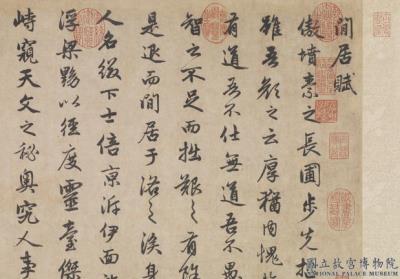 閒居賦
傲墳素之長圃步先
雖吾顏之云厚猶內愧
有道吾不仕無道吾不愚
智之不足而拙艱之有餘
是退而閒居于洛之涘身
人名綴下士倍京泝伊面
浮梁黝以徑度靈臺傑
峙窺天文之秘奧究人事
國立故宮博物院
NATIONAL PALACE MUSEUM